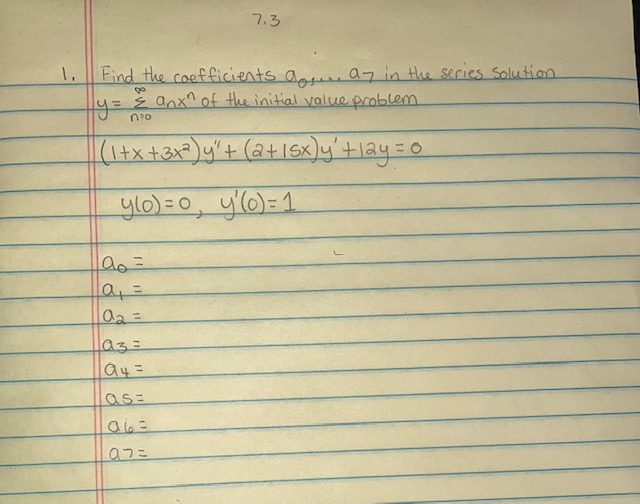 7.3
1. Find the coefficients a₀,... a₇ in the series solution
y = ∞Σn=0 anxⁿ of the initial value problem
(1+x+3x²)y" + (2+15x)y' +12y = 0
y(0) = 0, y'(0) = 1
a₀ =
a₁ =
a₂ =
a₃ =
a₄ =
a₅ =
a₆ =
a₇ =